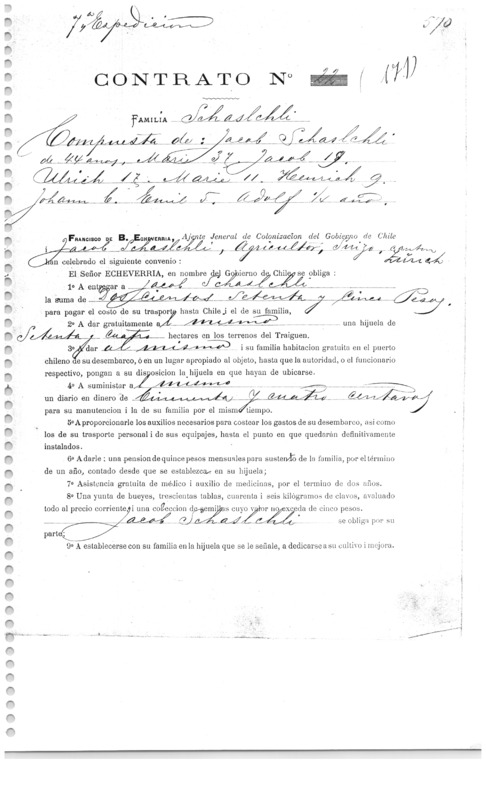 7ª Expedicion 510
CONTRATO Nº 22 (171)
FAMILIA Schaslchli
Compuesta de: Jacob Schaslchli
de 44 anos, Marie 37. Jacob 19.
Ulrich 17. Marie 11. Heinrich 9.
Johann 6. Emil 5. Adolf ½ año.
FRANCISCO DE B. ECHEVERRIA, Ajente Jeneral de Colonizacion del Gobierno de Chile
Jacob Schaslchli, Agricultor, Suizo, canton
Zürich
han celebrado el siguiente convenio:
El Señor ECHEVERRIA, en nombre del Gobierno de Chile se obliga:
1º A entregar a Jacob Schaslchli
la suma de Dos Cientos Setenta y Cinco Pesos.
para pagar el costo de su trasporte hasta Chile i el de su familia,
2º A dar gratuitamente al mismo una hijuela de
Setenta y cuatro hectares en los terrenos del Traiguen.
3º A dar al mismo i su familia habitacion gratuita en el puerto
chileno de su desembarco, ó en un lugar apropiado al objeto, hasta que la autoridad, o el funcionario
respectivo, pongan a su disposicion la hijuela en que hayan de ubicarse.
4º A suministar al mismo
un diario en dinero de Cincuenta y cuatro centavos
para su manutencion i la de su familia por el mismo tiempo.
5º A proporcionarle los auxilios necesarios para costear los gastos de su desembarco, así como
los de su trasporte personal i de sus equipajes, hasta el punto en que quedarán definitivamente
instalados.
6º A darle: una pension de quince pesos mensuales para sustento de la familia, por el término
de un año, contado desde que se establezca en su hijuela;
7º Asistencia gratuita de médico i auxilio de medicinas, por el termino de dos años.
8º Una yunta de bueyes, trescientas tablas, cuarenta i seis kilógramos de clavos, avaluado
todo al precio corriente, i una coleccion de semillas cuyo valor no exceda de cinco pesos.
Jacob Schaslchli se obliga por su
parte:
9º A establecerse con su familia en la hijuela que se le señale, a dedicarse a su cultivo i mejora.